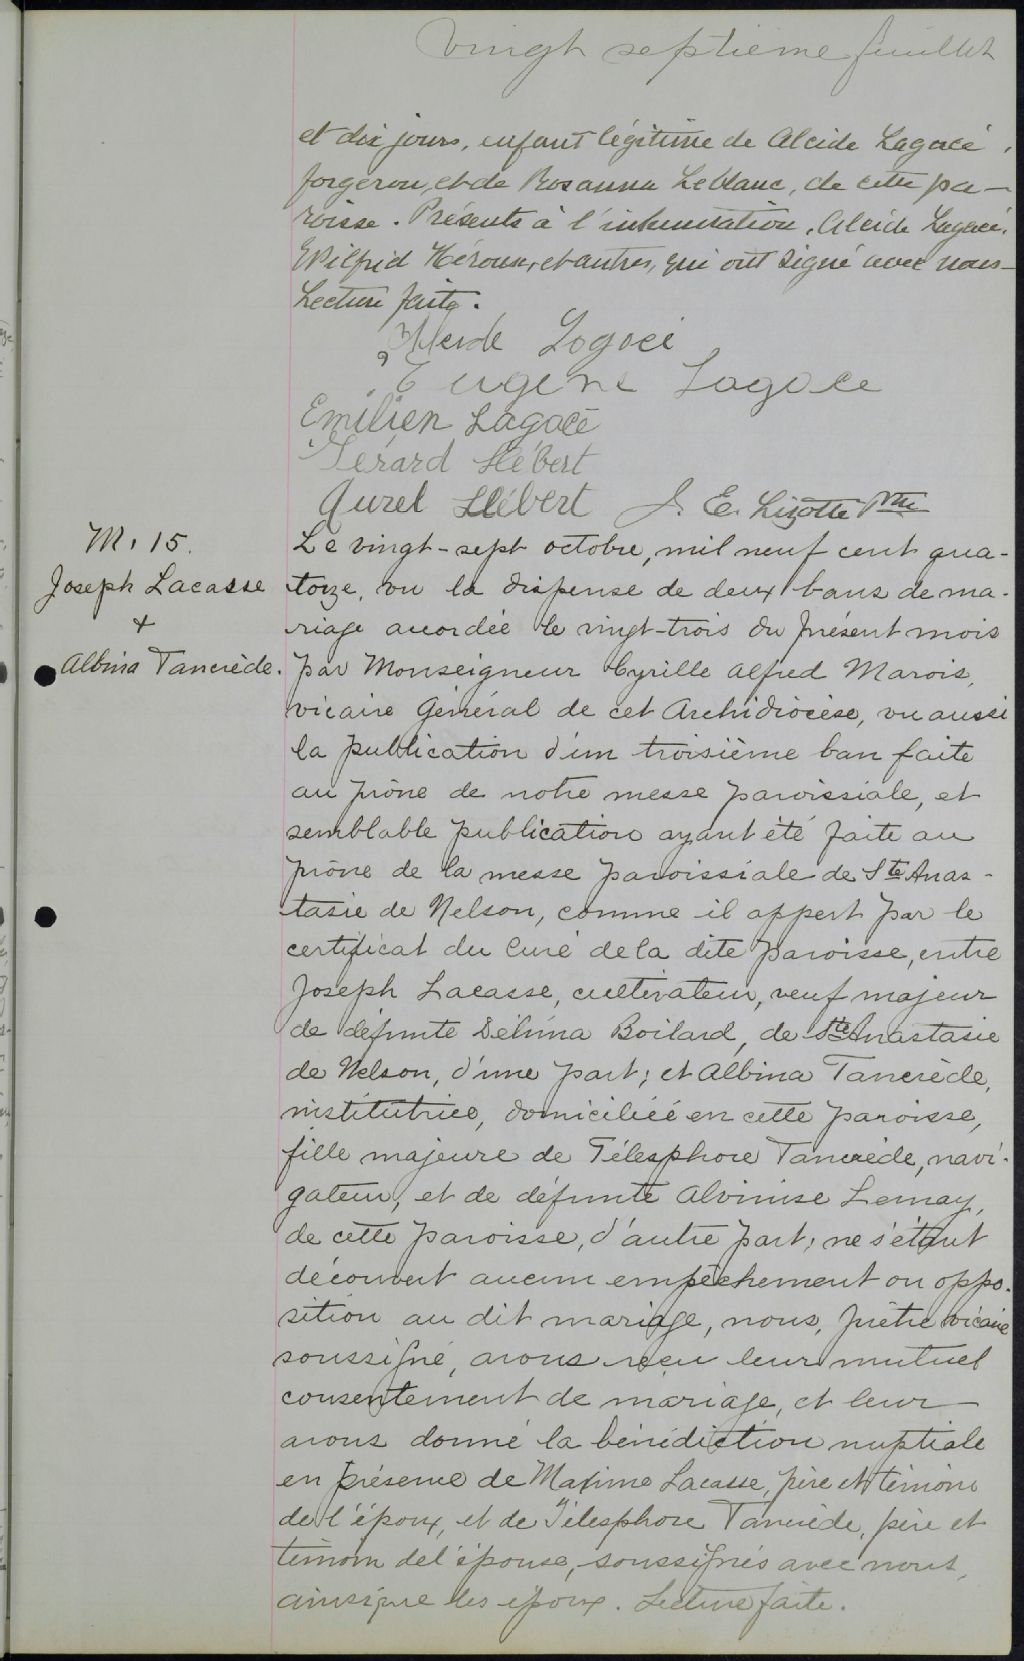 vingt septième feuillet
et dix jours, enfant légitime de Alcide Lagacé,
forgeron, et de Rosanna Leblanc, de cette pa-
roisse. Présents à l'inhumation, Alcide Lagacé,
Wilfrid Héroux, et autres, qui ont signé avec nous-
Lecture faite.
Alcide Lagacé
Eugène Lagacé
Emilien Lagacé
Gérard Hébert
Aurel Hébert J. E. Lizotte Ptre
M. 15.
Joseph Lacasse
+
Albina Tancrède.
Le vingt-sept octobre, mil neuf cent qua-
torze, vu la dispense de deux bans de ma-
riage accordée le vingt-trois du présent mois
par Monseigneur Cyrille Alfred Marois,
vicaire Général de cet Archidiocèse, vu aussi
la publication d'un troisième ban faite
au prône de notre messe paroissiale, et
semblable publication ayant été faite au
prône de la messe paroissiale de Ste Anas-
tasie de Nelson, comme il appert par le
certificat du Curé de la dite paroisse, entre
Joseph Lacasse, cultivateur, veuf majeur
de défunte Délima Boilard, de Ste Anastasie
de Nelson, d'une part; et Albina Tancrède,
institutrice, domiciliée en cette paroisse,
fille majeure de Télesphore Tancrède, navi-
gateur, et de défunte Alvinise Lemay,
de cette paroisse, d'autre part; ne s'étant
découvert aucun empêchement ou oppo-
sition au dit mariage, nous, prêtre vicaire
soussigné, avons reçu leur mutuel
consentement de mariage, et leur
avons donné la bénédiction nuptiale
en présence de Maxime Lacasse, père et témoin
de l'époux, et de Télesphore Tancrède, père et
témoin de l'épouse, soussignés avec nous,
ainsique les époux. Lecture faite.